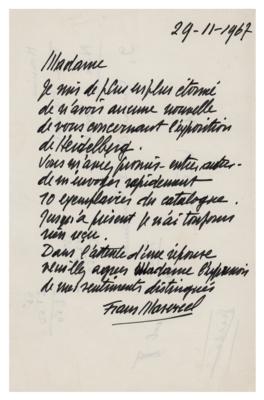 29-11-1967
Madame
Je suis de plus en plus étonné
de n'avoir aucune nouvelle
de vous concernant l'exposition
de Heidelberg.
Vous m'aviez promis entre autre
de m'envoyer rapidement
10 exemplaires du catalogue.
Jusqu'à présent je n'ai toujours
rien reçu.
Dans l'attente d'une réponse
veuillez agréer Madame l'expression
de mes sentiments distingués
Frans Masereel